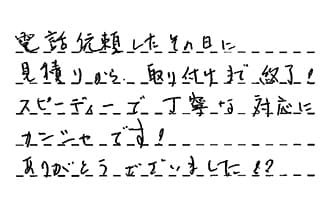 電話依頼したその日に
見積りから、取り付けまで終了!
スピーディーで丁寧な対応に
カンシャです!
ありがとうございました!?